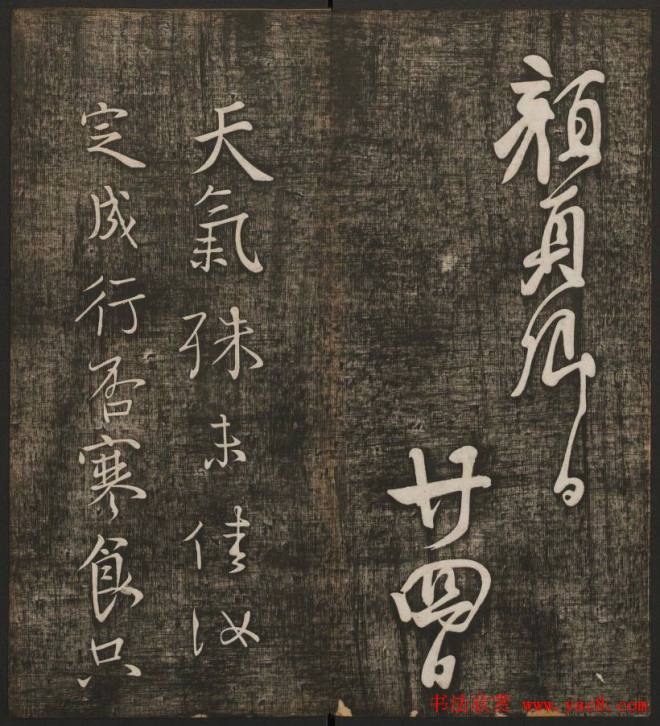 顔真卿白
廿四日
天氣殊未佳汝
定成行否寒食只
书法欣赏 www.yac8.com